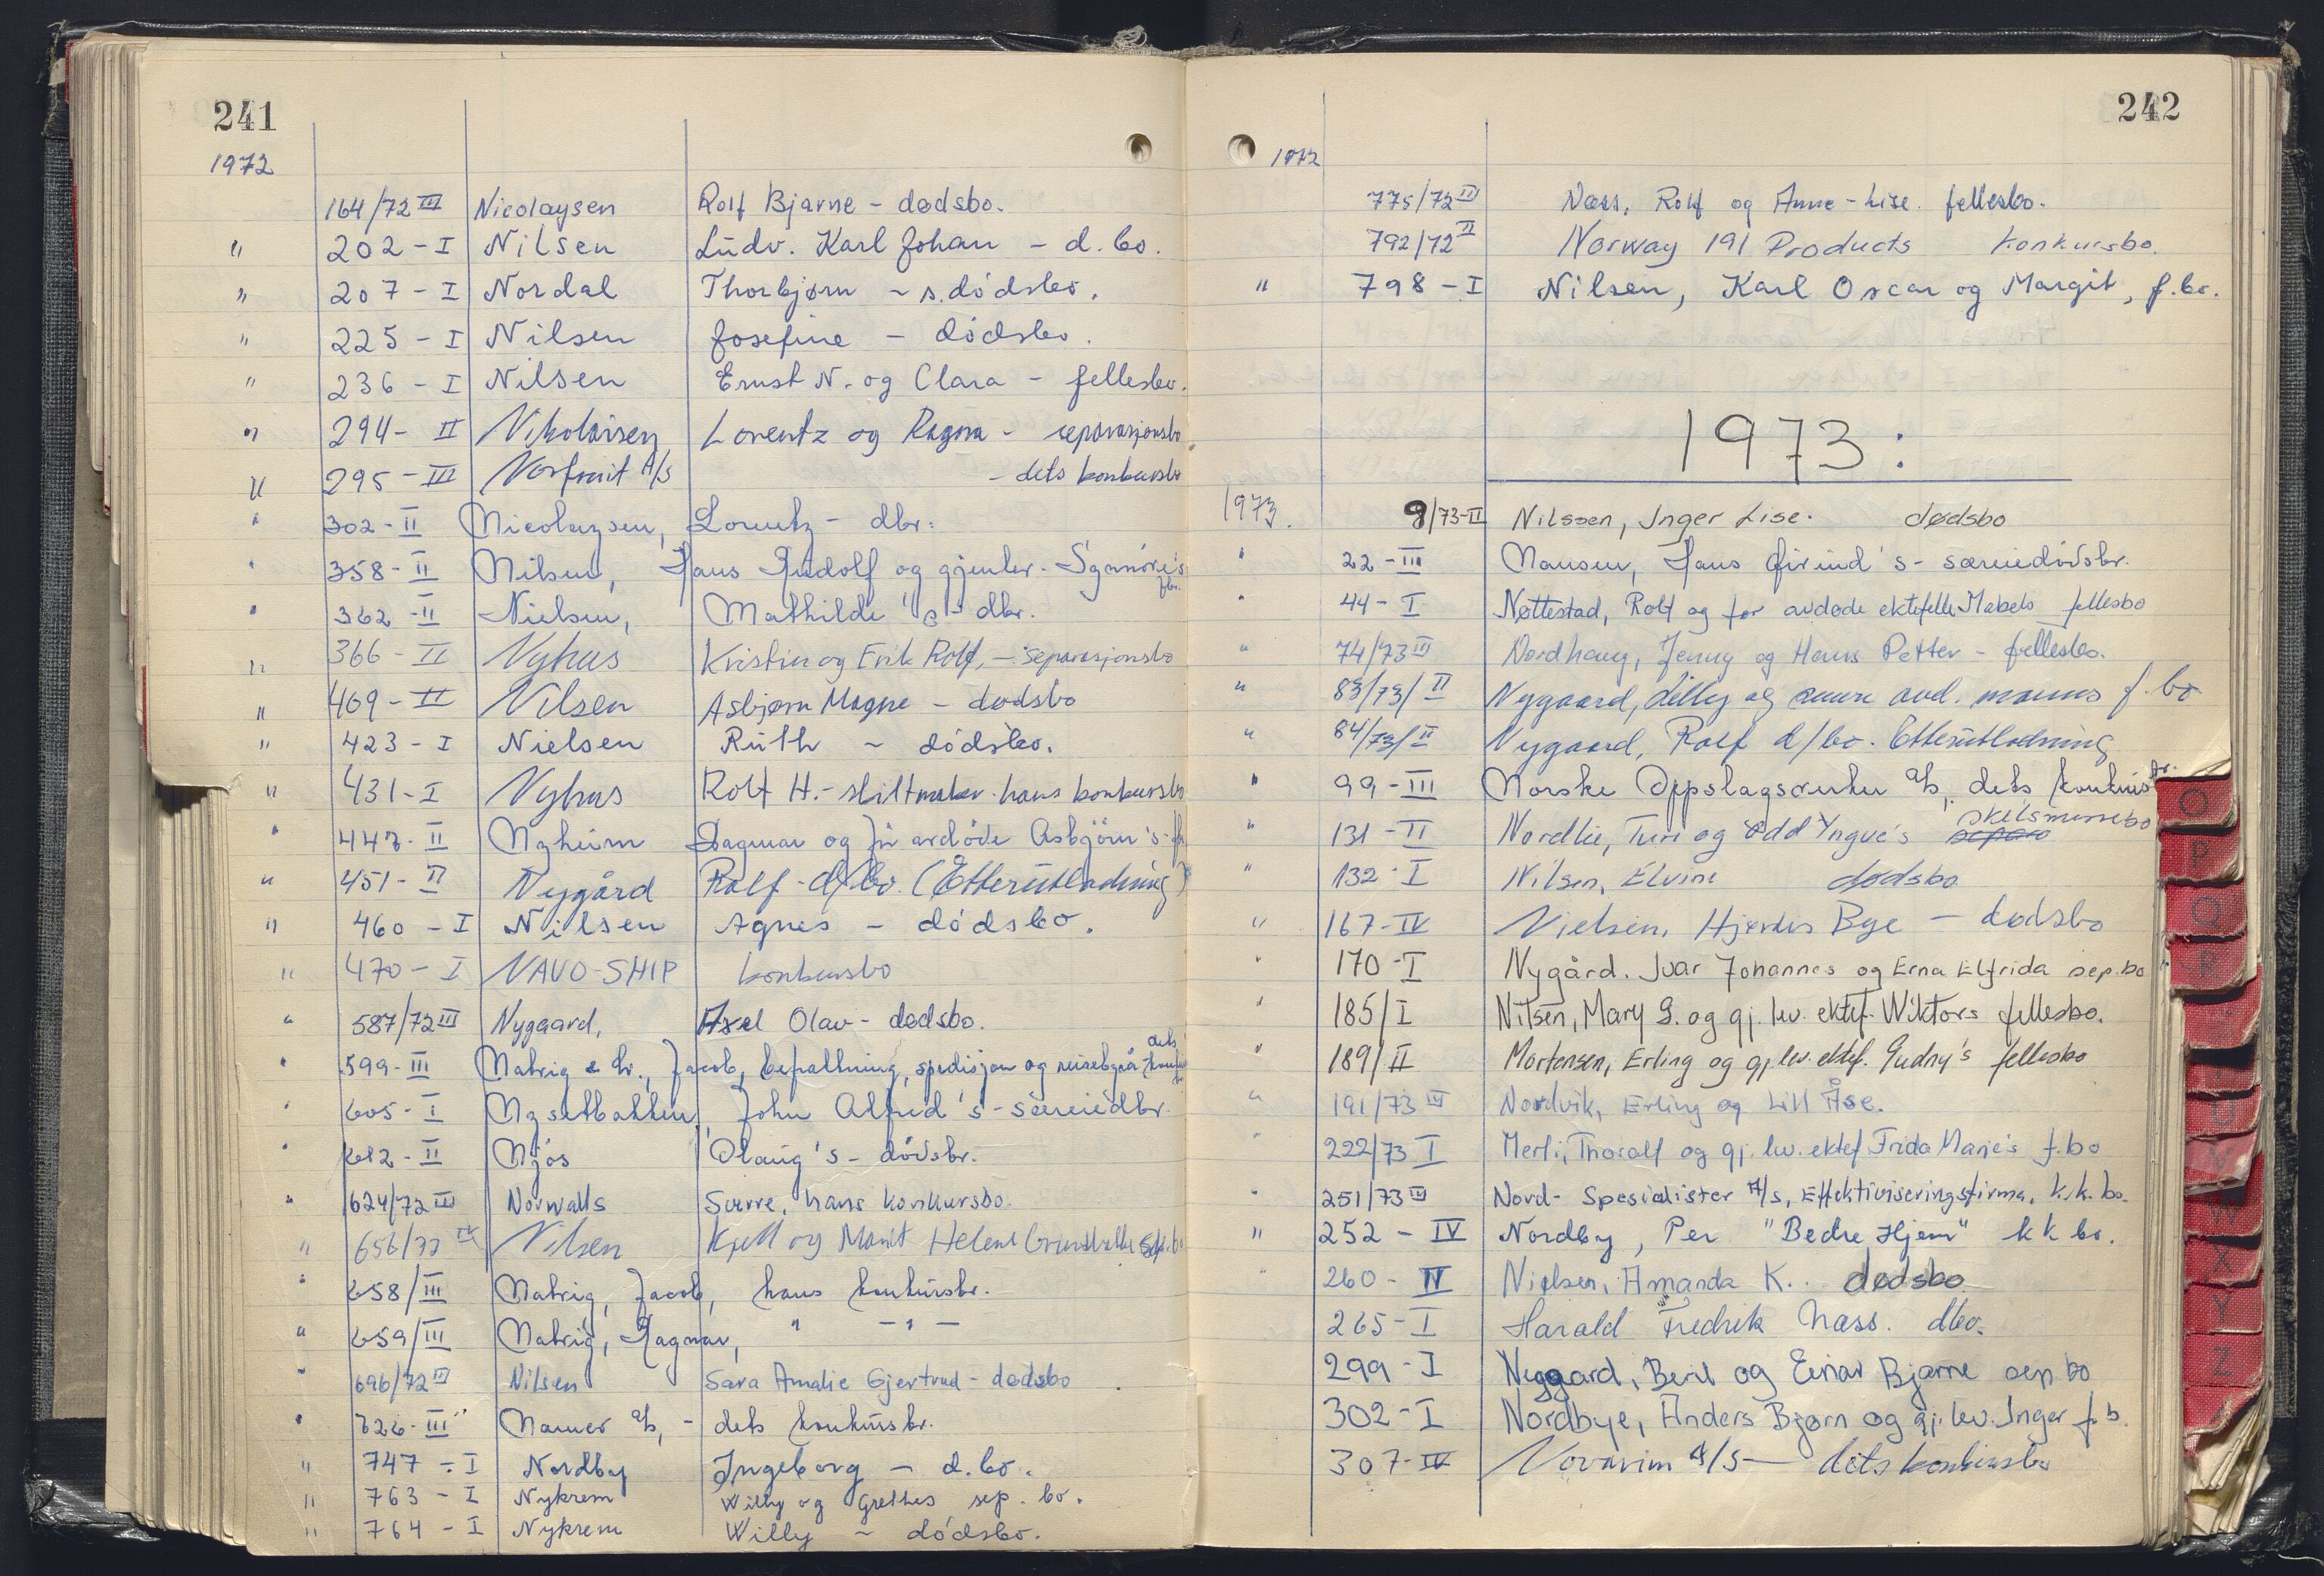 241
1972
164/72 III Nicolaysen Rolf Bjarne - dødsbo.
" 202 - I Nilsen Ludv. Karl Johan - d. bo.
" 207 - I Nordal Thorbjørn - s. dødsbo.
" 225 - I Nilsen Josefine - dødsbo.
" 236 - I Nilsen Ernst N. og Clara - fellesbo.
" 294 - II Nikolaisen Lorentz og Ragna - separasjonsbo
" 295 - III Norfruit A/S - dets konkursbo
" 302 - II Nicolaysen, Lorentz - dbr.
" 358 - II Nilsen, Hans Rudolf og gjenlev. Sganøre's fbr.
" 362 - II Nielsen, Mathilde 's - dbr.
" 366 - II Nyhus Kristin og Erik Rolf, - separasjonsbo
" 409 - II Nilsen Asbjørn Magne - dødsbo
" 423 - I Nielsen Ruth - dødsbo.
" 431 - I Nyhus Rolf H. - skiltmaker - hans konkursbo
" 447 - II Nyheim Dagmar og for avdøde Asbjørn's -
" 451 - II Nygård Rolf - d/bo. (Etterutlodning)
" 460 - I Nilsen Agnes - dødsbo.
" 470 - I NAVO-SHIP konkursbo
" 587/72 III Nygaard, Axel Olav - dødsbo.
" 599 - III Natrig & Co., Jacob, befraktning, spedisjon og reisebyrå dets
" 605 - I Nysetbakken, John Alfred 's - særeiedbr.
" 612 - II Njøs Olaug 's - dødsbr.
" 624/72 III Norwalls Sverre, hans konkursbo.
" 656/72 IV Nilsen Kjell og Marit Helene sep. b.
" 658/III Natrig, Jacob, hans konkursbr.
" 659/III Natrig, Dagmar, " - " -
" 696/72 III Nilsen Sara Amalie Gjertrud - dødsbo
" 726 - III Namer A/S, - dets konkursbr.
" 747 - I Nordby Ingeborg - d. bo.
" 763 - I Nykrem Willy og Grethes sep. bo.
" 764 - I Nykrem Willy - dødsbo.
242
1972
775/72 II Næss, Rolf og Anne-Lise. fellesbo.
792/72 II Norway 191 Products konkursbo.
" 798 - I Nilsen, Karl Oscar og Margit, f. bo.
1973:
1973. 9/73-II Nilssen, Inger Lise. dødsbo
" 22 - III Nansen, Hans Eivind 's - særeiedødsbr.
" 44 - I Nøttestad, Rolf og for avdøde ektefelle Mabels fellesbo
" 74/73 III Nordhaug, Jenny og Hans Petter - fellesbo.
" 83/73/II Nygaard, Lilly og avd. manns f. bo
" 84/73/II Nygaard, Rolf d/bo. Etterutlodning
" 99 - III Norske Oppslagsverker A/S, dets konkursbr.
" 131 - II Nordlie, Turi og Odd Yngve's separa skilsmissebo
" 132 - I Nilsen, Elvine dødsbo
" 167 - IV Nielsen, Hjørdis Bye - dødsbo
" 170 - I Nygård. Ivar Johannes og Erna Elfrida sep. bo
" 185/I Nilsen, Mary G. og gj. lev. ektef. Wiktors fellesbo.
" 189/II Mortensen, Erling og gj. lev. ektef. Gudny's fellesbo
" 191/73 III Nordvik, Erling og Lill Åse.
" 222/73 I Merli, Thoralf og gj. lev. ektef Frida Marie's f. bo
" 251/73 III Nord-Spesialister A/S, Effektiviseringsfirma, k.k. bo.
" 252 - IV Nordby, Per "Bedre Hjem" k k bo.
" 260 - IV Nielsen, Amanda K.. dødsbo
265 - I Harald Fredrik Næss. dbo.
299 - I Nygaard, Beril og Einar Bjarne sep bo
302 - I Nordbye, Anders Bjørn og gj. lev. Inger f. b.
307 - IV Novarim A/S - dets konkursbo
O
P
Q
R
S
U
V
W
X
Y
Z